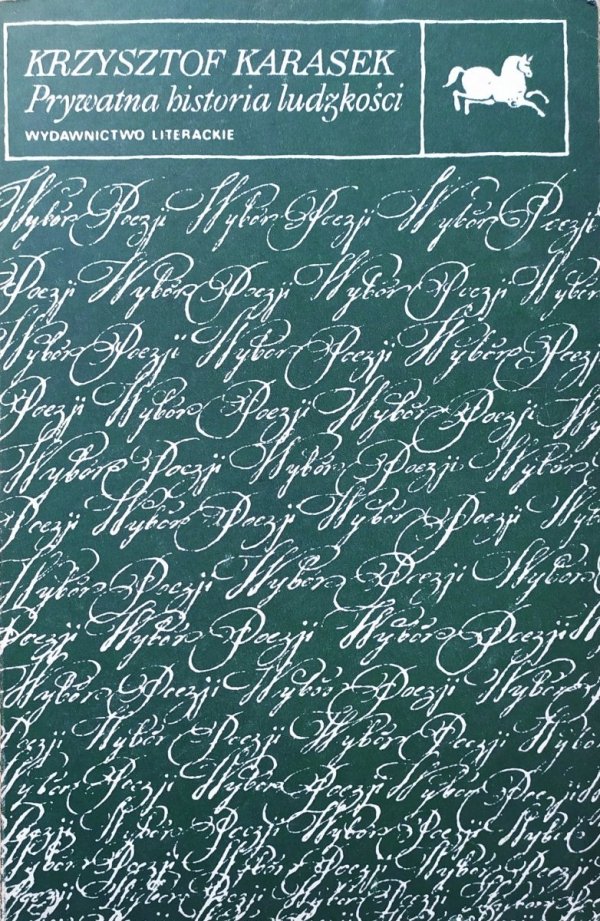 KRZYSZTOF KARASEK
Prywatna historia ludzkości
WYDAWNICTWO LITERACKIE
Wybór Poezji Wybór Poezji Wybór Poezji
Poezji Wybór Poezji Wybór Poezji Wybór
Wybór Poezji Wybór Poezji Wybór Poezji
Poezji Wybór Poezji Wybór Poezji
Wybór Poezji Wybór Poezji Wybór
Poezji Wybór Poezji Wybór Poezji
Wybór Poezji Wybór Poezji Wybór
Poezji Wybór Poezji Wybór Poezji
Wybór Poezji Wybór Poezji Wybór
Poezji Wybór Poezji Wybór Poezji Wybó
Wybór Poezji Wybór Poezji Wybór Poezji
Poezji Wybór Poezji Wybór Poezji Wybór
Wybór Poezji Wybór Poezji Wybór Poezji
Poezji Wybór Poezji Wybór Poezji Wybór